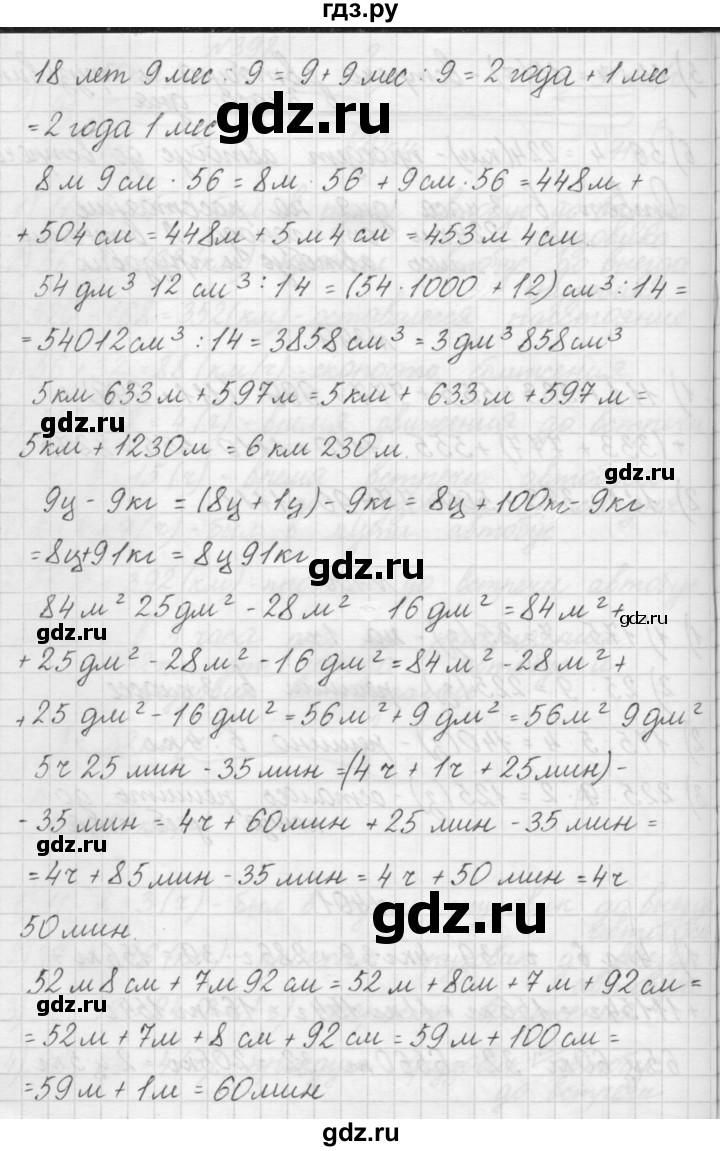 гдз.ру
18 лет 9 мес : 9 = 9 + 9 мес : 9 = 2 года + 1 мес
= 2 года 1 мес
gdz.ru
8 м 9 см · 56 = 8м · 56 + 9 см · 56 = 448м +
+ 504 см = 448м + 5 м 4 см = 453 м 4см
gdz.ru
54 дм³ 12 см³ : 14 = (54 · 1000 + 12) см³ : 14 =
= 54012 см³ : 14 = 3858 см³ = 3 дм³ 858 см³
5 км 633 м + 597 м = 5 км + 633 м + 597 м =
gdz.ru
5 км + 1230 м = 6 км 230 м.
gdz.ru
9ц - 9кг = (8ц + 1ц) - 9кг = 8ц + 100m - 9кг
= 8ц + 91кг = 8ц 91кг
gdz.ru
84 м² 25 дм² - 28 м² 16 дм² = 84 м² +
gdz.ru
gdz.ru
+ 25 дм² - 28 м² - 16 дм² = 84 м² - 28 м² +
+ 25 дм² - 16 дм² = 56 м² + 9 дм² = 56 м² 9 дм²
gdz.ru
5 ч 25 мин - 35 мин = (4 ч + 1ч + 25мин) -
- 35 мин = 4ч + 60мин + 25 мин - 35 мин =
gdz.ru
= 4ч + 85 мин - 35 мин = 4 ч + 50 мин = 4ч
gdz.ru
50 мин.
52 м 8 см + 7м 92 см = 52 м + 8см + 7 м + 92 см =
gdz.ru
= 52м + 7м + 8 см + 92 см = 59м + 100 см =
= 59 м + 1 м = 60мин
gdz.ru
gdz.ru